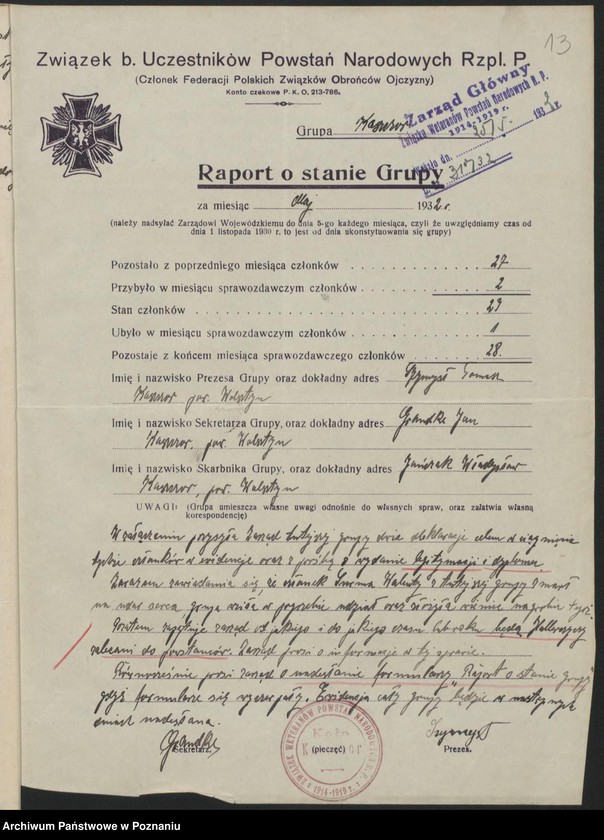 13
Związek b. Uczestników Powstań Narodowych Rzpl. P.
(Członek Federacji Polskich Związków Obrońców Ojczyzny)
Konto czekowe P. K. O. 213-786.
Zarząd Główny
Związku Weteranów Powstań Narodowych R. P.
1914-1919 r.
Grupa
Raport o stanie Grupy
za miesiąc Maj 1932 r.
(należy nadsyłać Zarządowi Wojewódzkiemu do dnia 5-go każdego miesiąca, czyli że uwzględniamy czas od
dnia 1 listopada 1930 r. to jest od dnia ukonstytuowania się grupy)
Pozostało z poprzedniego miesiąca członków 27
Przybyło w miesiącu sprawozdawczym członków 2
Stan członków 29
Ubyło w miesiącu sprawozdawczym członków 1
Pozostaje z końcem miesiąca sprawozdawczego członków 28.
Imię i nazwisko Prezesa Grupy oraz dokładny adres
pow. Wolsztyn
Imię i nazwisko Sekretarza Grupy, oraz dokładny adres Grandke Jan
pow. Wolsztyn
Imię i nazwisko Skarbnika Grupy, oraz dokładny adres Janczak Władysław
pow. Wolsztyn
UWAGI: (Grupa umieszcza własne uwagi odnośnie do własnych spraw, oraz załatwia własną
korespondencję)
W załączeniu przesyła Zarząd tutejszej grupy dwie deklaracje celem wciągnięcia
tychże członków w ewidencję oraz z prośbą o wydanie legitymacji i dyplomu.
Zarazem zawiadamia się, że członek Walenty z tutejszej grupy zmarł
na udar serca grupa wzięła w pogrzebie udział oraz złożyła wieniec
zapytuje zarząd od jakiego i do jakiego czasu będą Hallerczycy
zaliczani do powstańców. Zarząd prosi o informacje w tej sprawie.
Równocześnie prosi zarząd o nadesłanie formularzy "Raport o stanie grupy"
gdyż formularze się wyczerpały. Ewidencja całej grupy będzie w następnych
dniach nadesłana.
Grandke
Sekretarz.
(pieczęć)
Prezes.
ZWIĄZEK WETERANÓW POWSTAŃ NARODOWYCH R. P.
1914-1919 r.
Koło
Archiwum Państwowe w Poznaniu